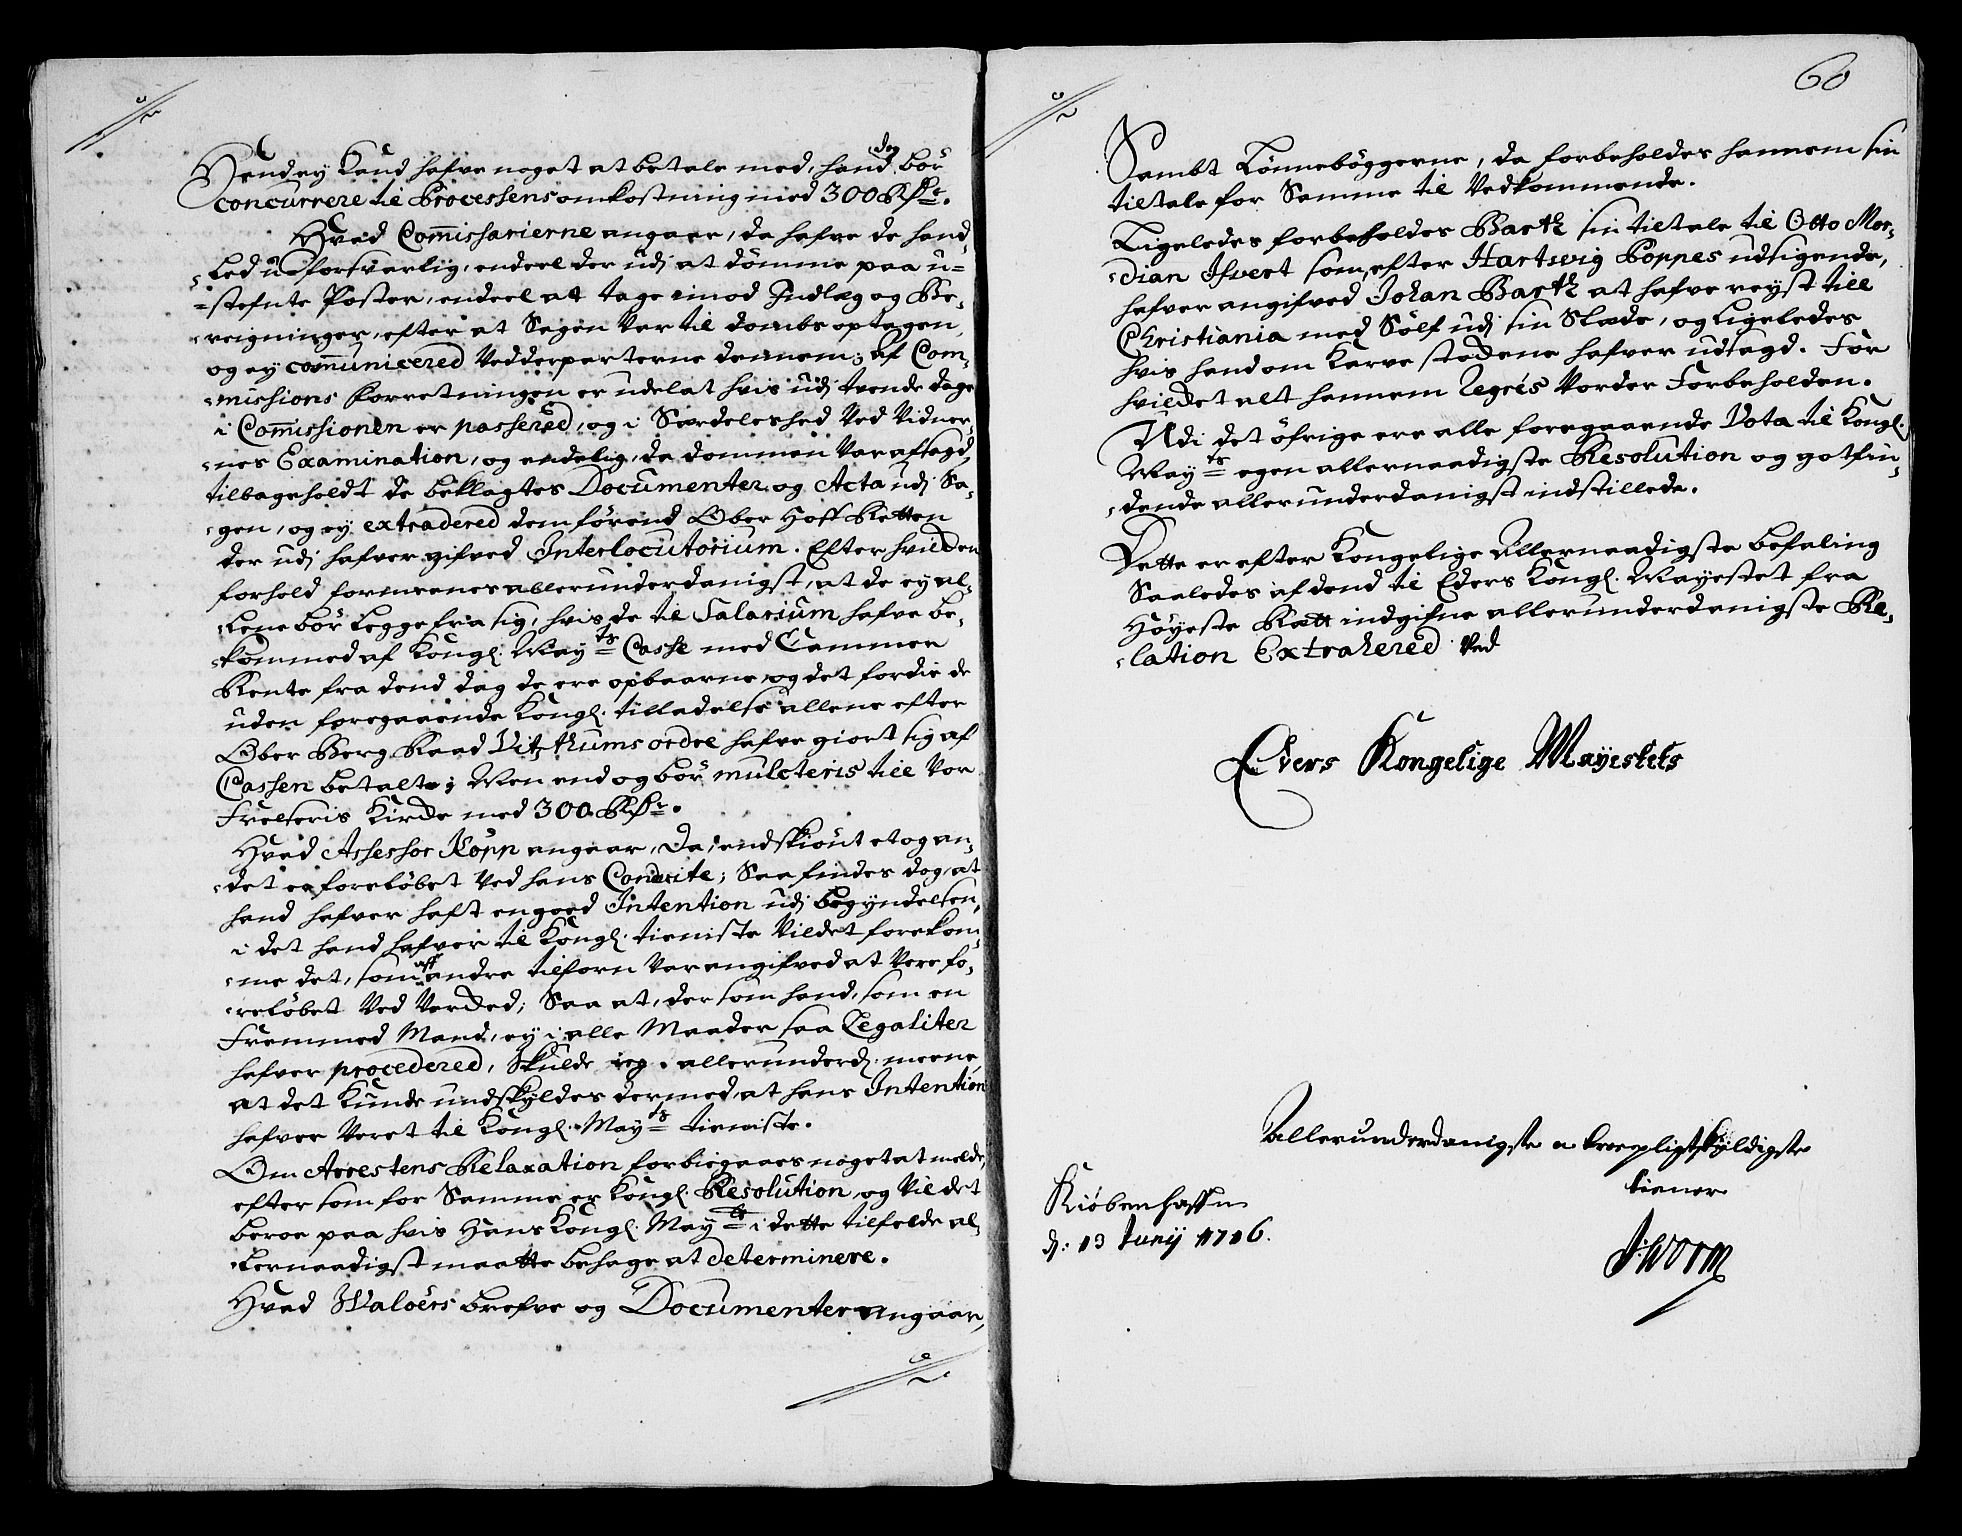 Hend ey Kand hafve noget at betale med, hand dog bör
concurrere til Processens omkostning med 300 Rdr.
Hvad Commissarierne angaar, da hafve de hand-
-led uforsvarlig, endeel der udj at dömme paa u-
-stefnte Poster, endeel at tage imod Indlæg og Be-
-reigninger, efter at Sagen Var til dombs optagen,
og ey communicered Vedderparterne dennem; af Com-
-missions Forretningen er udelat hvis udj tvende dage
i Commissionen er passered, og i Særdeleshed Ved Vidner-
-nes Examination, og endelig, da dommen Var afsagd,
tilbageholdt de beklagtes Documenter og Acta udj Sa-
-gen, og ey extradered dem förend Ober Hoff Retten
der udj hafver gifved Interlocutorium. Efter hvilcken
forhold formeenes allerunderdanigst, at de ey al-
-lene bör legge fra sig, hvis de til Salarium hafve be-
-kommed af Kongl. Mayts Casse med Cammer
Rente fra dend dag de ere opbaarne og det fordi de
uden foregaaende Kongl. tilladelse allene efter
Ober Berg Raad Vitzthums ordre hafve giort sig af
Cassen betalte; Men end og bör mulcteris till Vor
Frelseris Kircke med 300 Rdr.
Hvad Assessor Köpp angaar, Da, endskiönt et og an-
-det er foreløbet Ved hans Conduite; Saa findes dog, at
hand hafver haft en goed Intention udj begyndelsen,
i det hand hafver til Kongl. tieniste Vildet forekom-
-me det, som aff andre tilforn Var angifved at Vere fo-
-reløbet Ved Vercked; Saa at, der som hand, som en
Fremmed Mand, ey i alle Maader saa Legaliter
hafver procedered, Skulde ieg allerunderd. meene,
at det Kunde undskyldes dermed, at hans Intention
hafver Veret til Kongl. Mayts tieniste.
Om Arrestens Relaxation forbiegaaes noget at melde,
eftersom for Samme er Kongl. Resolution, og Vil det
beroe paa hvis Hans Kongl. Mayts i dette tilfelde al-
-lernaadigst maatte behage at determinere.
Hvad Waloërs brefve og Documenter angaar,
60
Sambt Lönnebøggerne, da forbeholdes hannem sin
tiltale for Samme til Vedkommende.
Ligeledes forbeholdes Barth sin tiltale til Otto Mer-
-dian Ifvert som, efter Hartwig Poppes udsigende,
hafver angifved Johan Barth at hafve reyst till
Christiania med Sölf udj sin Slæde, og ligeledes
hvis hand om Karve stedene hafver udsagd. For
hvilcket alt hannem Regrés Vorder Forbeholden.
Udi det öfrige ere alle foregaaende Vota til Kongl.
Mayts egen allernaadigste Resolution og gotfin-
-dende allerunderdanigst indstillede.
Dette er efter Kongelige Allernaadigste befaling
Saaledes af dend til Eders Kongl. Mayestet fra
Höyeste Rætt indgifne allerunderdanigste Re-
-lation Extrahered Ved
Eders Kongelige Mayestets
Allerunderdanigste a troepligtskyldigste
tiener
Kiöbenhaffn
d: 13 Junij 1716.
JWorm